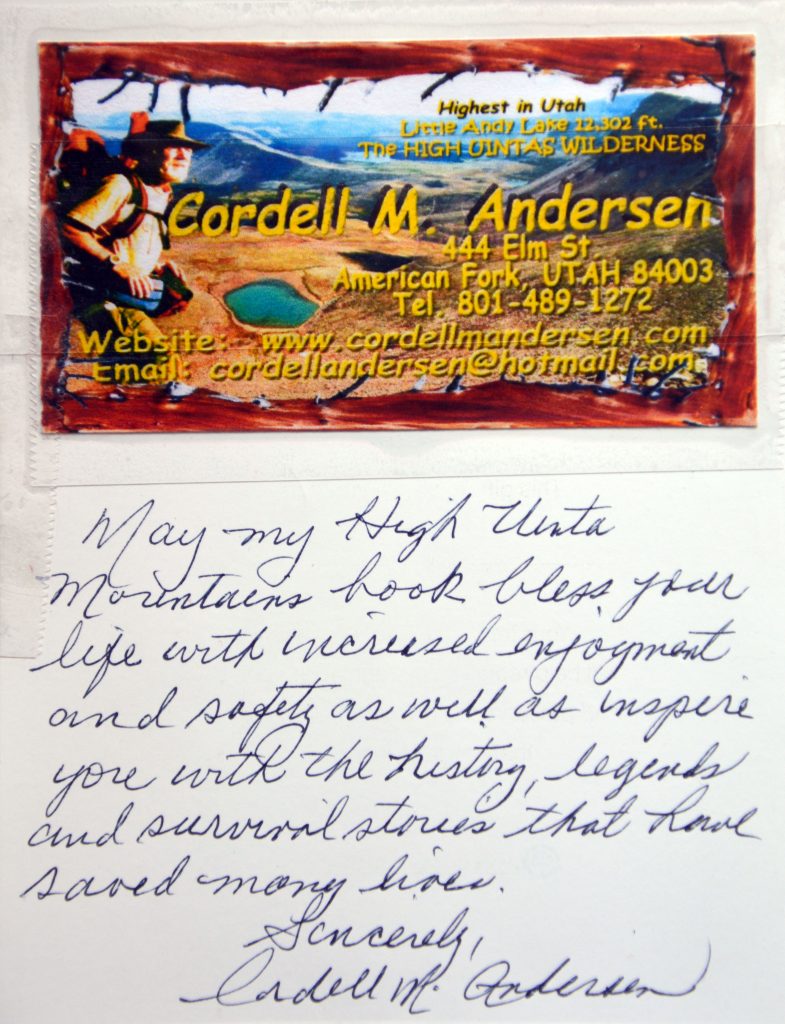 Highest in Utah
Little Andy Lake 12,302 ft.
The HIGH UINTAS WILDERNESS
Cordell M. Andersen
444 Elm St.
American Fork, UTAH 84003
Tel. 801-489-1272
Website: www.cordellmandersen.com
Email: cordellandersen@hotmail.com
May my High Uinta
Mountains book bless your
life with increased enjoyment
and safety as well as inspire
you with the history, legends
and survival stories that have
saved many lives.
Sincerely,
Cordell M. Andersen